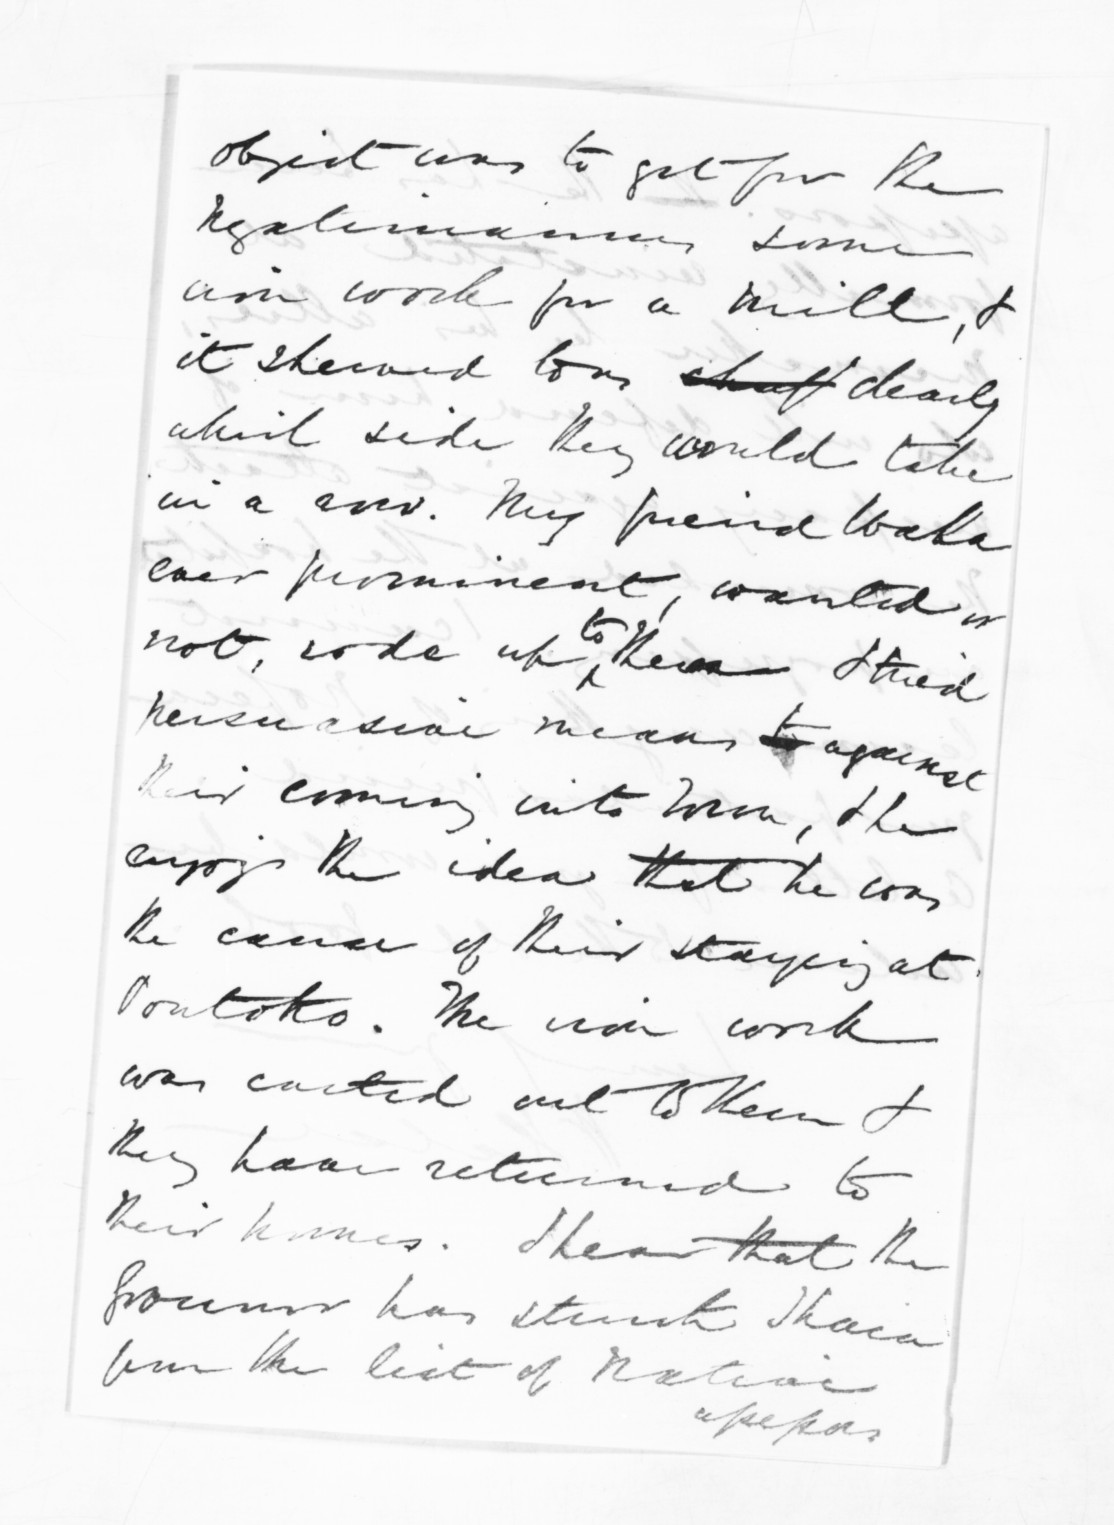 object was to get for the
Ngatimaniapoto some
iron work for a mill, &
it shewed to us ~~chuff~~ clearly
which side they would take
in a row. My freind Waka
ever prominent, wanted or
not, rode up to them & tried
persuasive means ~~to~~ against
their coming into Town, & he
enjoys the idea that he was
the cause of their staying at
Poutoko. The iron work
was carted out to them &
they have returned to
their homes. I hear that the
Governor has struck Ihaia
from the list of Native